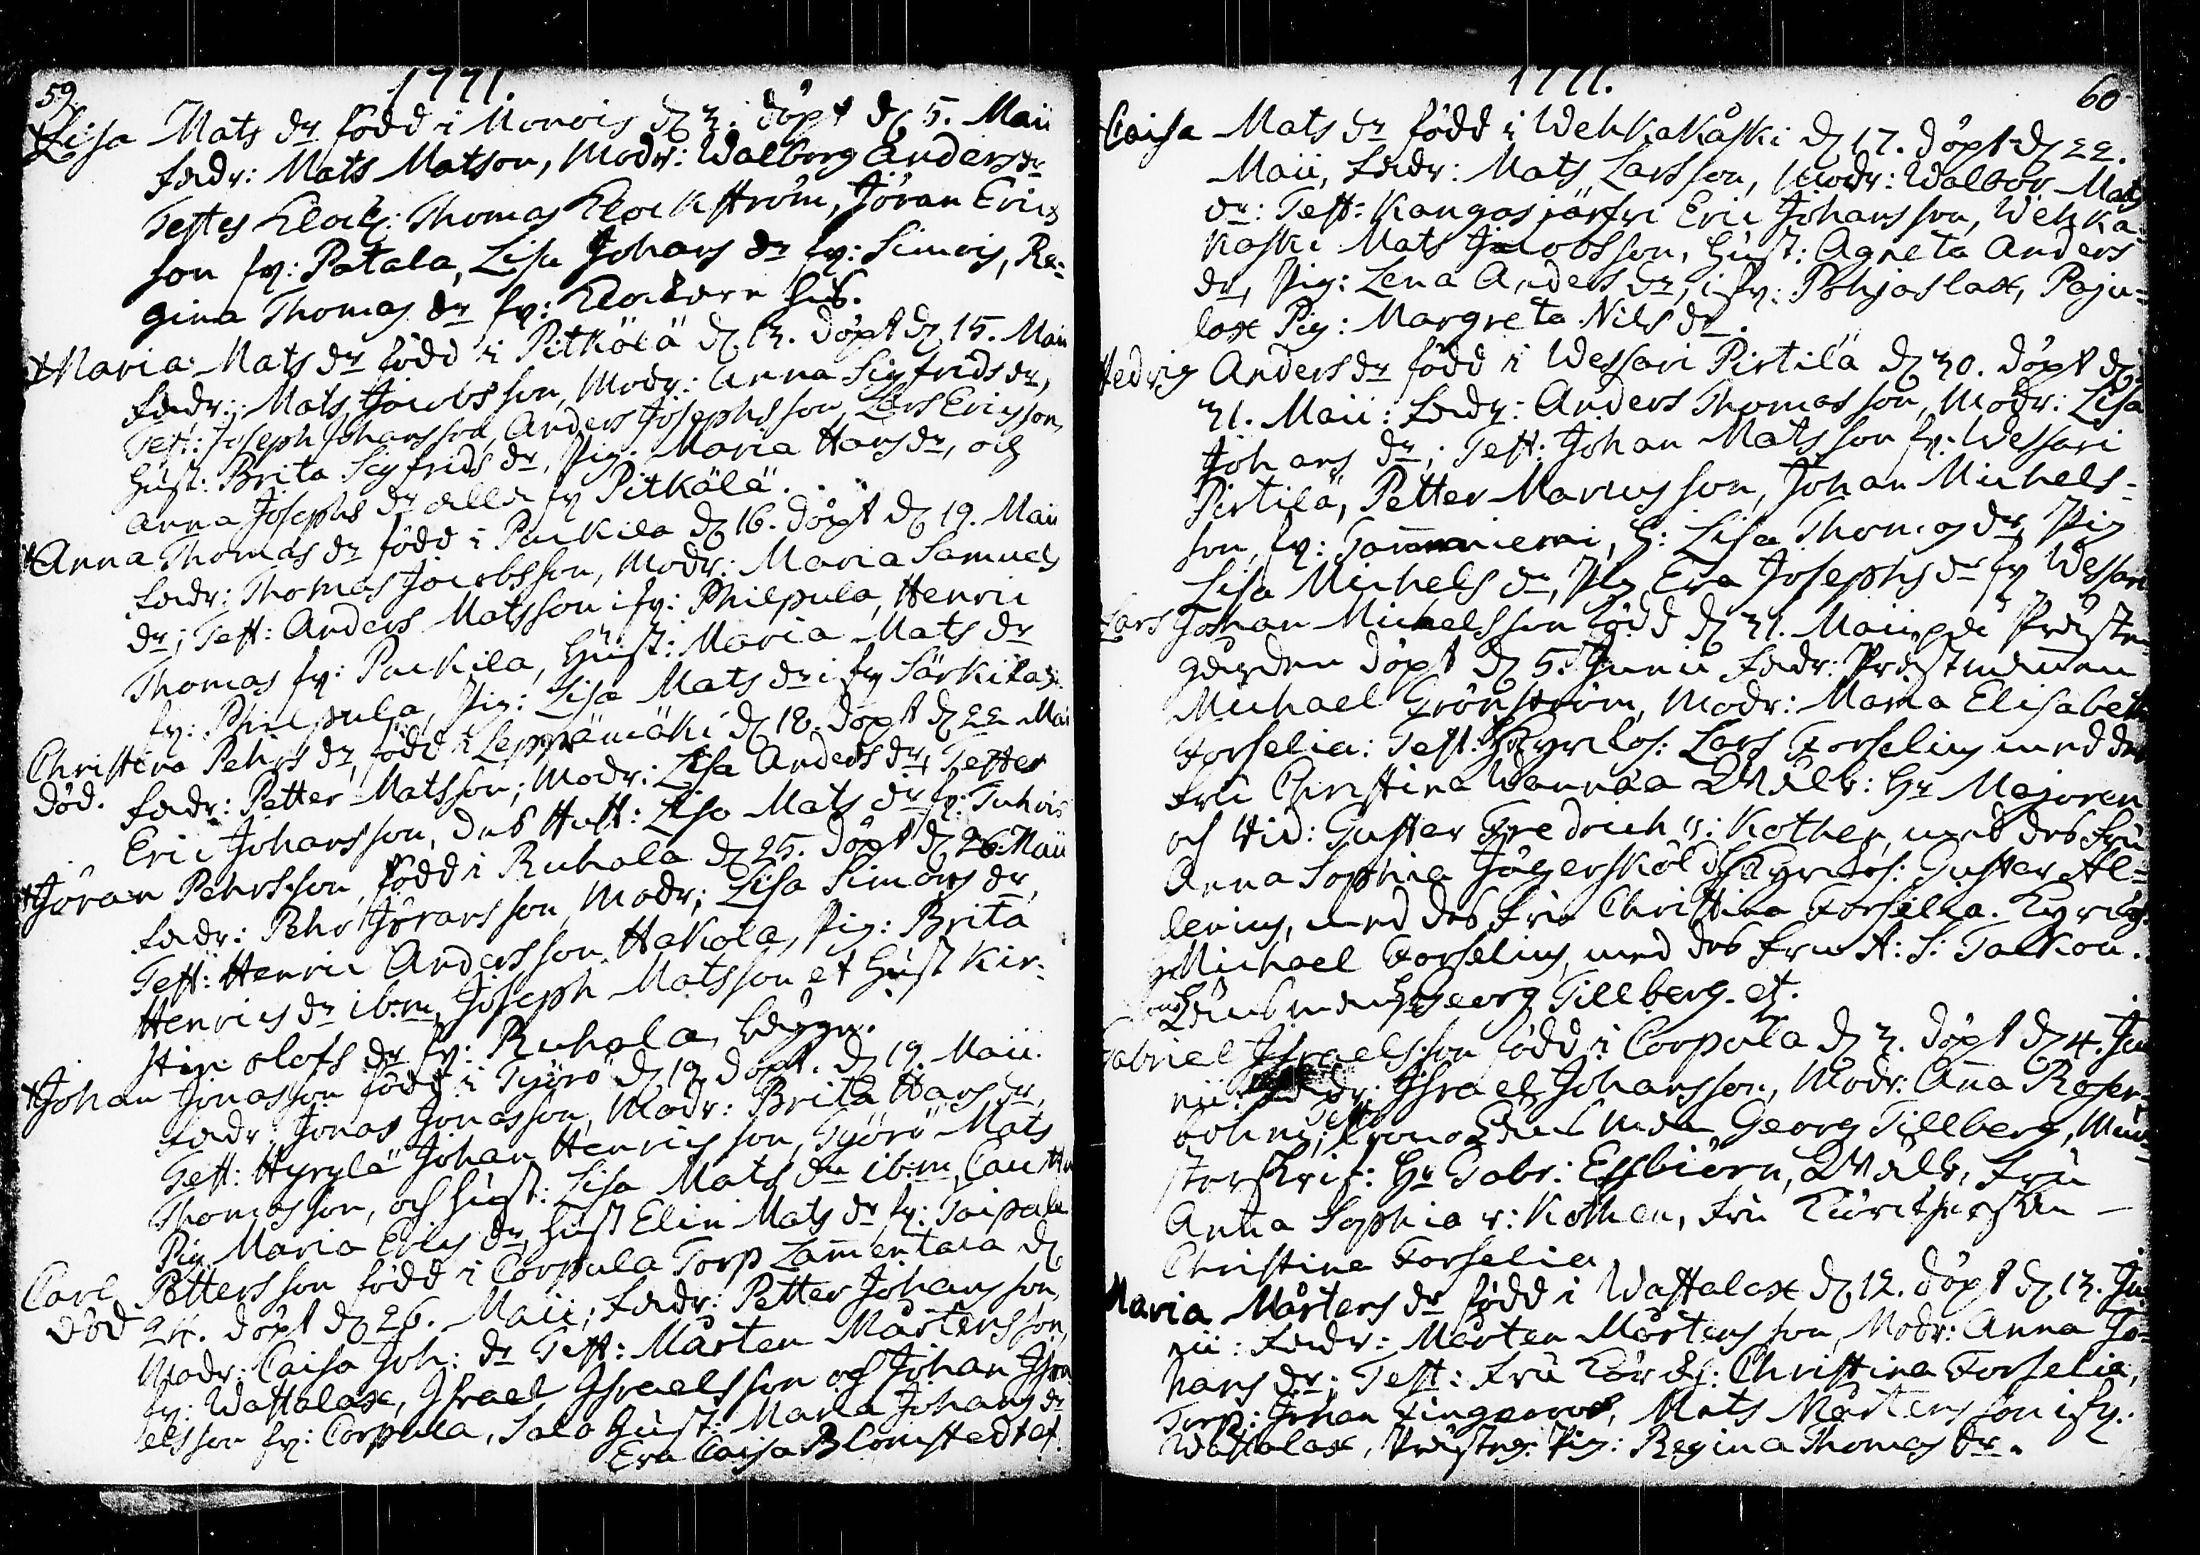 59.
1771.
Lisa Mats dr född i Monois d 3. döpt d 5. Maii
fadr: Mats Matson, Modr: Walborg Anders dr
Testes Klock: Thomas Klockström, Jöran Erics
son fr: Patala, Lisa Johans dr fr: Simois, Re=
gina Thomas dr fr: Klockare hus.
Maria Mats dr född i Pitkälä d. 13. döpt d 15. Maii
fadr: Mats Jacobsson, Modr: Anna Sigfrids dr,
Test: Joseph Johansson, Anders Josephsson, Lars Ericsson,
Hust: Brita Sigfrids dr, Pig: Maria Hans dr, och
Anna Josephs dr alla fr Pitkälä.
Anna Thomas dr född i Puckila d 16. döpt d 19. Maii
fadr: Thomas Jacobsson, Modr: Maria Samuels
dr; Test: Anders Matsson i fr: Philpula, Henric
Thomas fr: Puckila, Hust: Maria Mats dr
fr: Philpula, Pig: Lisa Mats dr i fr Särkilax.
Christina Pehrs dr, född i Leppämäki d 18. döpt d 22 Maii
död. fadr: Petter Matsson; Modr: Lisa Anders dr, Testes
Eric Johansson, dess Hust: Lisa Mats dr fr: Tuhois
Jöran Pehrsson, född i Ruhala d 25. döpt d 26. Maii
fadr: Pehr Jöransson, Modr; Lisa Simons dr,
Test: Henric Andersson Hakola, Pig: Brita
Henrics dr ib:m, Joseph Matsson et Hust Kir=
stin Olofs dr fr: Ruhala, bägge.
Johan Jonasson född i Työrö d 19 döpt. d 19. Maii.
fadr: Jonas Jonasson, Modr: Brita Hans dr,
Test: Hyrylä Johan Henricsson, Työrö Mats
Thomasson, och hust: Lisa Mats dr ib:m,
Pig Maria Erics dr, hust Elin Mats dr fr: Taipale
Carl Pettersson född i Corpula Torp Lammentaca d
död 24. döpt d 26. Maii; fadr: Petter Johansson,
Modr: Caisa Joh: dr Test: Mårten Mårtensson,
fr: Wattalax, Israel Israelsson och Johan Isra
elsson fr: Corpula, Salo Hust: Maria Johans dr
Eva Caisa Blomstedt et.
60
1771.
Caisa Mats dr född i Wehkakåski d 17. döpt d 22.
Maii, fadr: Mats Larsson, Modr: Walbor Mats
dr: Test: Kangasjärfvi Eric Johansson, Wehka=
kaski Mats Jacobsson, hust: Agneta Anders
dr, Pig: Lena Anders dr, i fr: Pohjaslax, Paju=
lax Pig: Margreta Nils dr.
Hedvig Anders dr född i Wessari Pirtilä d 30. döpt d
31. Maii: fadr: Anders Thomasson, Modr: Lisa
Johans dr; Test: Johan Matsson fr: Wessari
Pirtilä, Petter Marcusson, Johan Michels=
son, fr: Tammniemi, H: Lisa Thomas dr, Pig
Lisa Michels dr, Pig Eva Josephs dr fr Wessari
Lars Johan Michelsson född d 31. Maii på Präste
gården döpt d 5. Junii fadr: Prästmannen
Michael Grönström, Modr: Maria Elisabeth
Forselia: Test: Hr Kyrckos: Lars Forselius med dess
fru Christina Wanæa Wälb: Hr Majoren
och Rid: Gustav Fredrich v: Kothen, med dess fru
Anna Sophia Jägerskiöld, Hr Kyrckos: Gustav Al=
lenius, med dess fru Christina Forselia. Kyrckos
Hr Michael Forselius, med dess fru A: S: Talkon.
Länsman Hr Georg Tillberg. et.
Gabriel Israelsson född i Corpula d 3. döpt d 4. Ju
nii fadr: Israel Johansson, Modr: Anna Rosen=
bohm; Test Krono Länsman Georg Tillberg, Mön=
sterskrif: Hr Gabr: Essbiörn, Wälb, fru
Anna Sophia v: Kothen, fru
Christina Forselia
Maria Mårtens dr född i Wattalax d. 12. döpt d. 13. Ju
nii: fadr: Mårten Mårtensson, Modr: Anna Jo=
hans dr; Test: fru Christina Forselia,
Torp: Johan Fingeroos, Mats Mårtensson i fr.
Wattalax, Prästg: Pig: Regina Thomas dr.